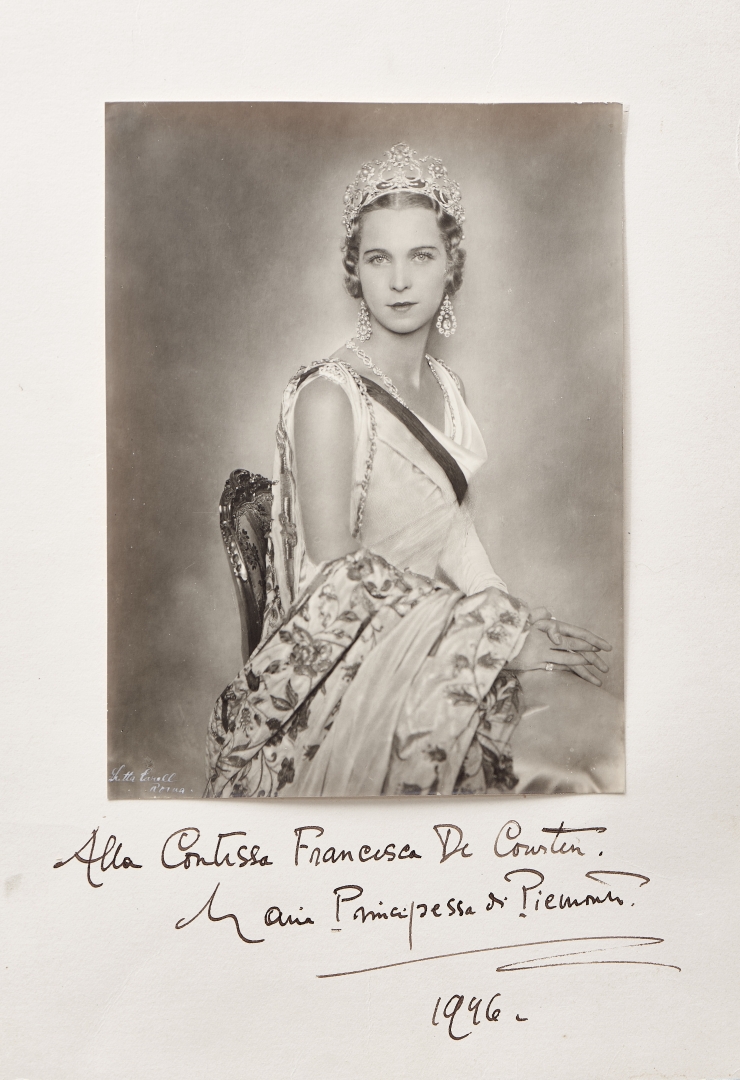 Alla Contessa Francesca De Courten.
Maria Principessa di Piemonte.
1946.
Roma